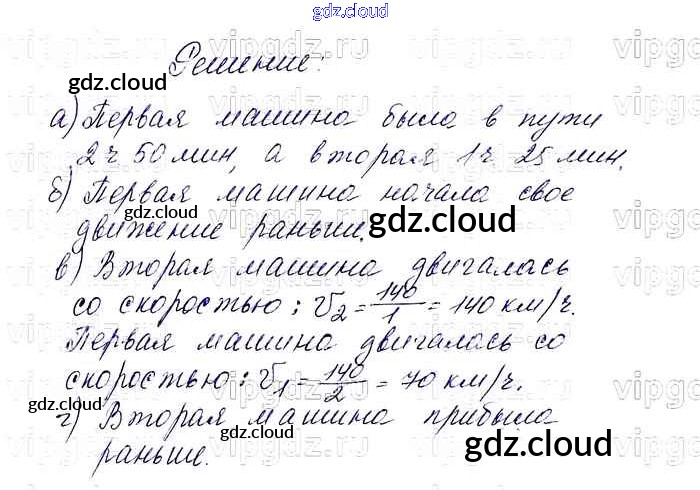 gdz.cloud
Решение:
а) Первая машина была в пути
2 ч 50 мин, а вторая 1 ч 25 мин.
б) Первая машина начала свое
движение раньше.
в) Вторая машина двигалась
со скоростью: V₂ = 140/1 = 140 км/ч.
Первая машина двигалась со
скоростью: V₁ = 140/2 = 70 км/ч.
г) Вторая машина прибыла
раньше.